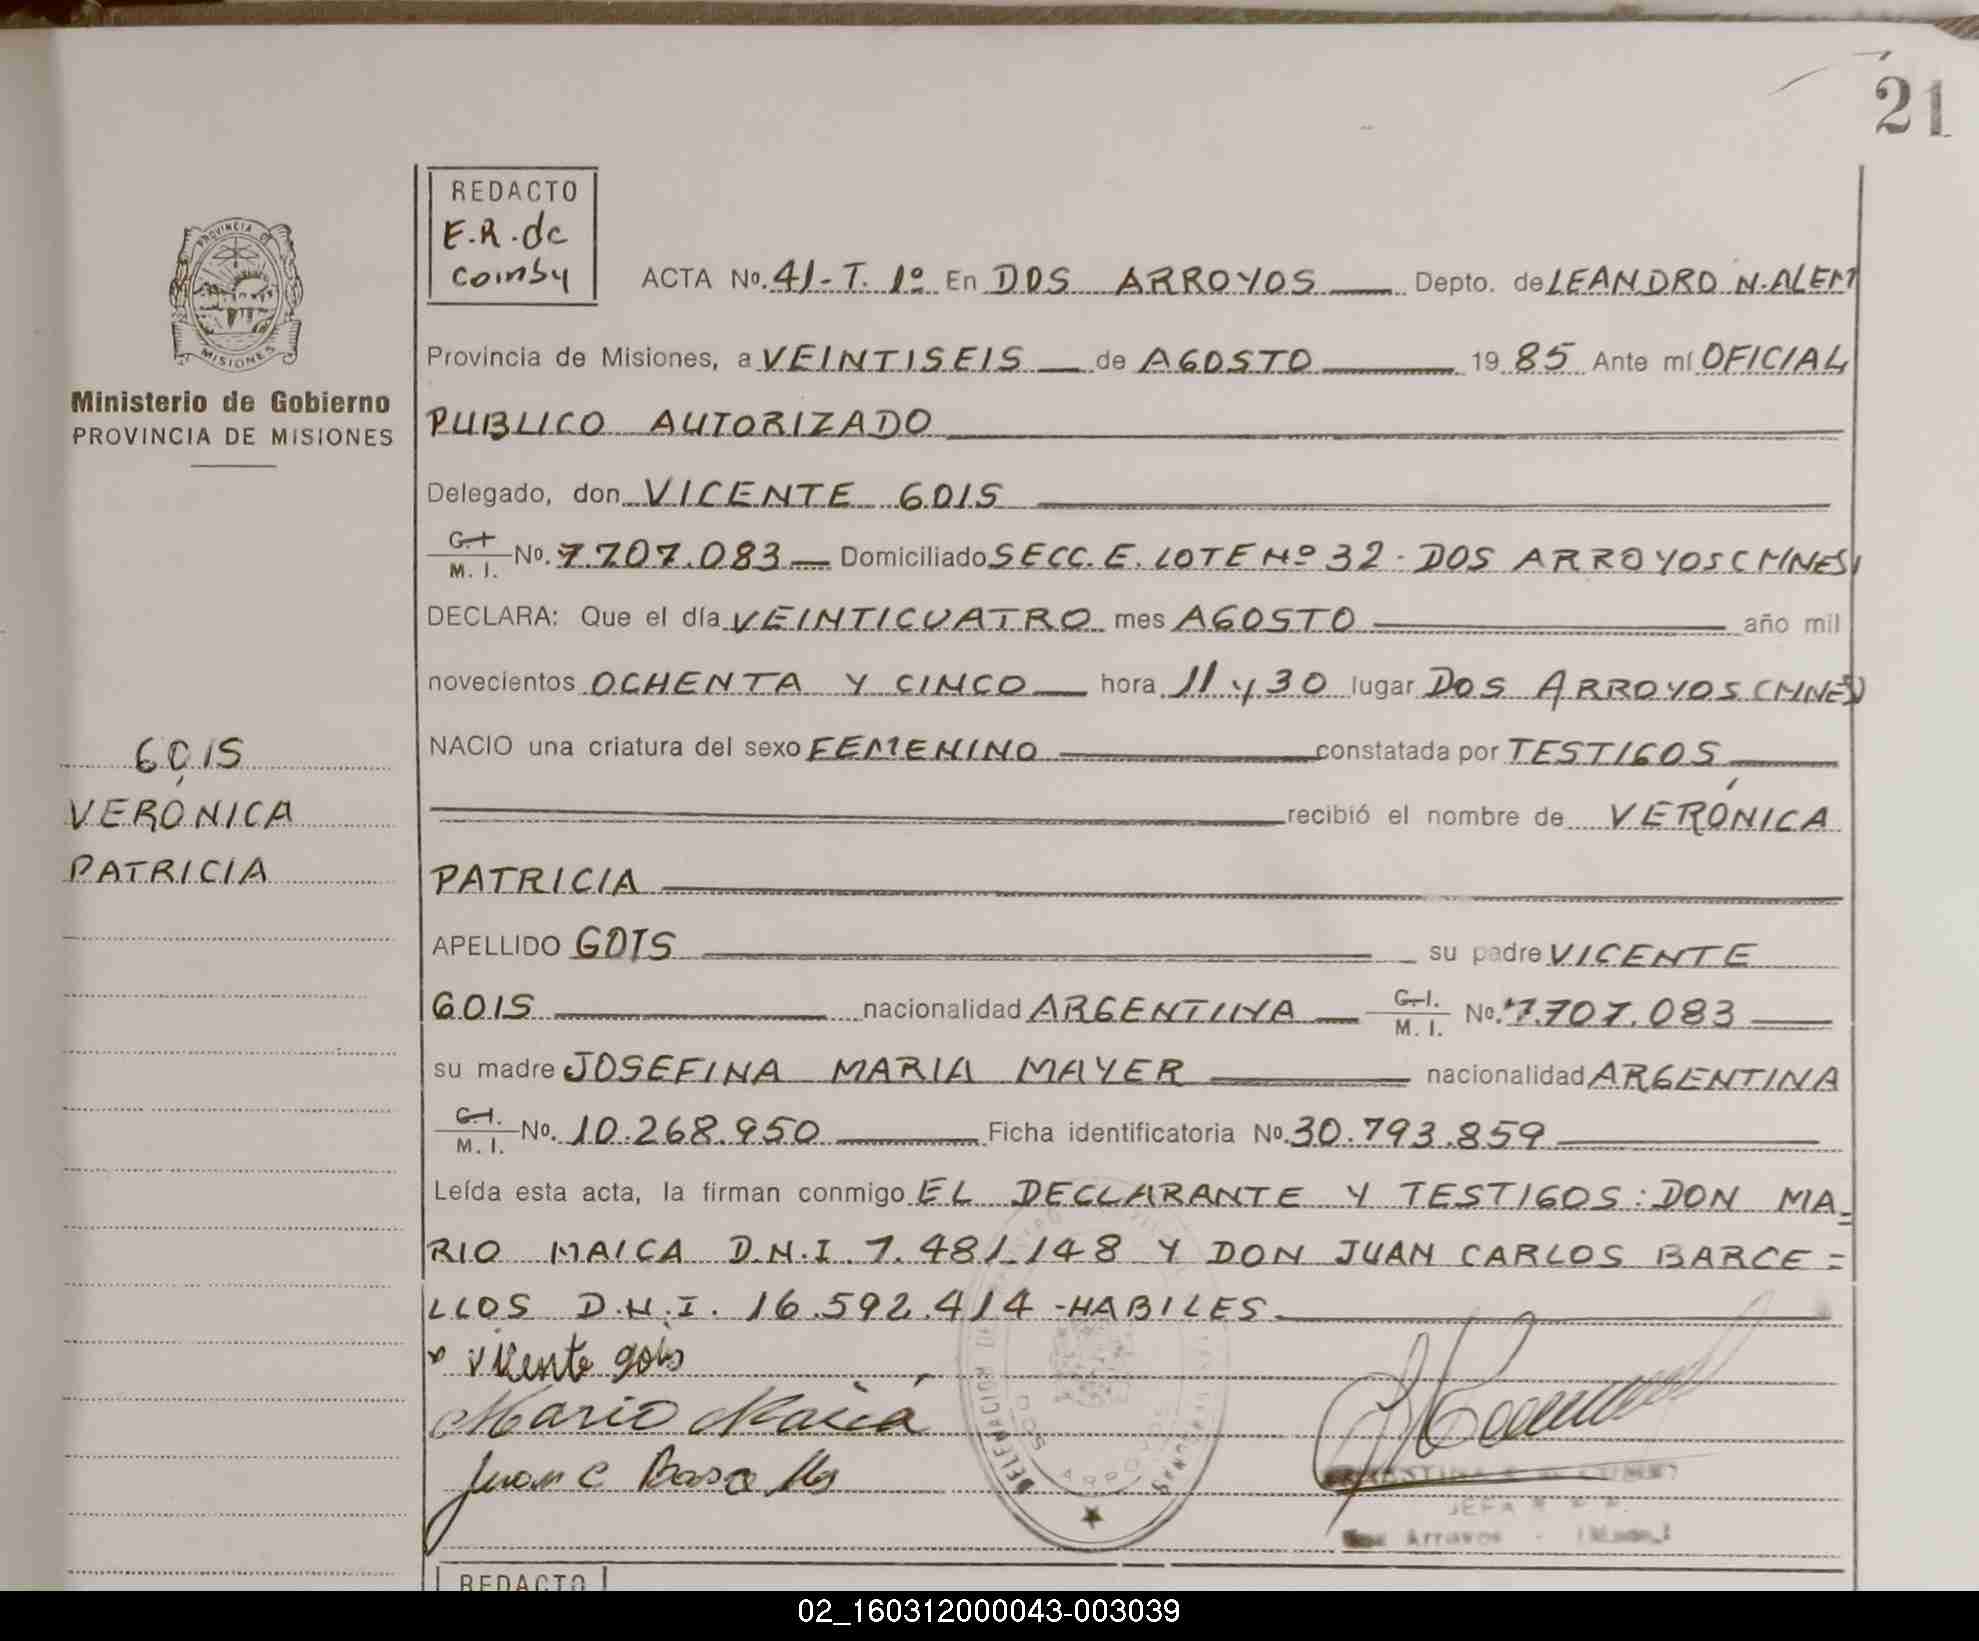 21
REDACTO
E.R. de
Coinby
PROVINCIA DE
MISIONES
Ministerio de Gobierno
PROVINCIA DE MISIONES
ACTA No. 41-T. 1º En DOS ARROYOS Depto. de LEANDRO N. ALEM
Provincia de Misiones, a VEINTISEIS de AGOSTO 1985 Ante mí OFICIAL
PUBLICO AUTORIZADO
Delegado, don VICENTE GOIS
C.I. M.I. No. 7.707.083 Domiciliado SECC. E. LOTE Nº 32 - DOS ARROYOS (MNES)
DECLARA: Que el día VEINTICUATRO mes AGOSTO año mil
novecientos OCHENTA Y CINCO hora 11 y 30 lugar DOS ARROYOS (MNES)
NACIO una criatura del sexo FEMENINO constatada por TESTIGOS
recibió el nombre de VERÓNICA
PATRICIA
GOIS
VERÓNICA
PATRICIA
APELLIDO GOIS su padre VICENTE
GOIS nacionalidad ARGENTINA C.I. M.I. No. 7.707.083
su madre JOSEFINA MARIA MAYER nacionalidad ARGENTINA
C.I. M.I. No. 10.268.950 Ficha identificatoria No. 30.793.859
Leída esta acta, la firman conmigo EL DECLARANTE Y TESTIGOS: DON MA=
RIO MAICA D.N.I 7.481.148 Y DON JUAN CARLOS BARCE=
LLOS D.N.I. 16.592.414 - HABILES
x vicente gois
Mario Maicá
Juan C Barcellos
DOS ARROYOS
JEFA
Arroyos
REDACTO
02_160312000043-003039